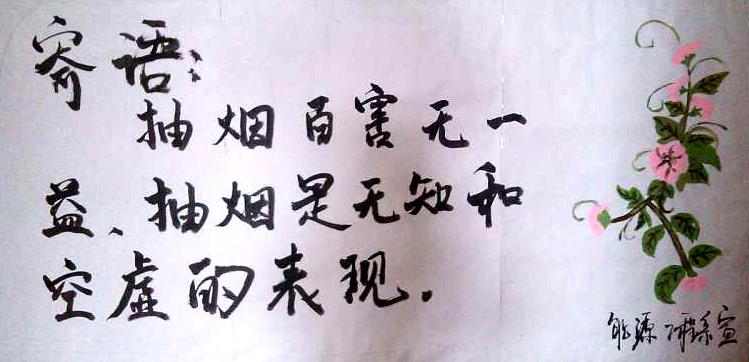 寄语:
抽烟百害无一
益、抽烟是无知和
空虚的表现.
能源